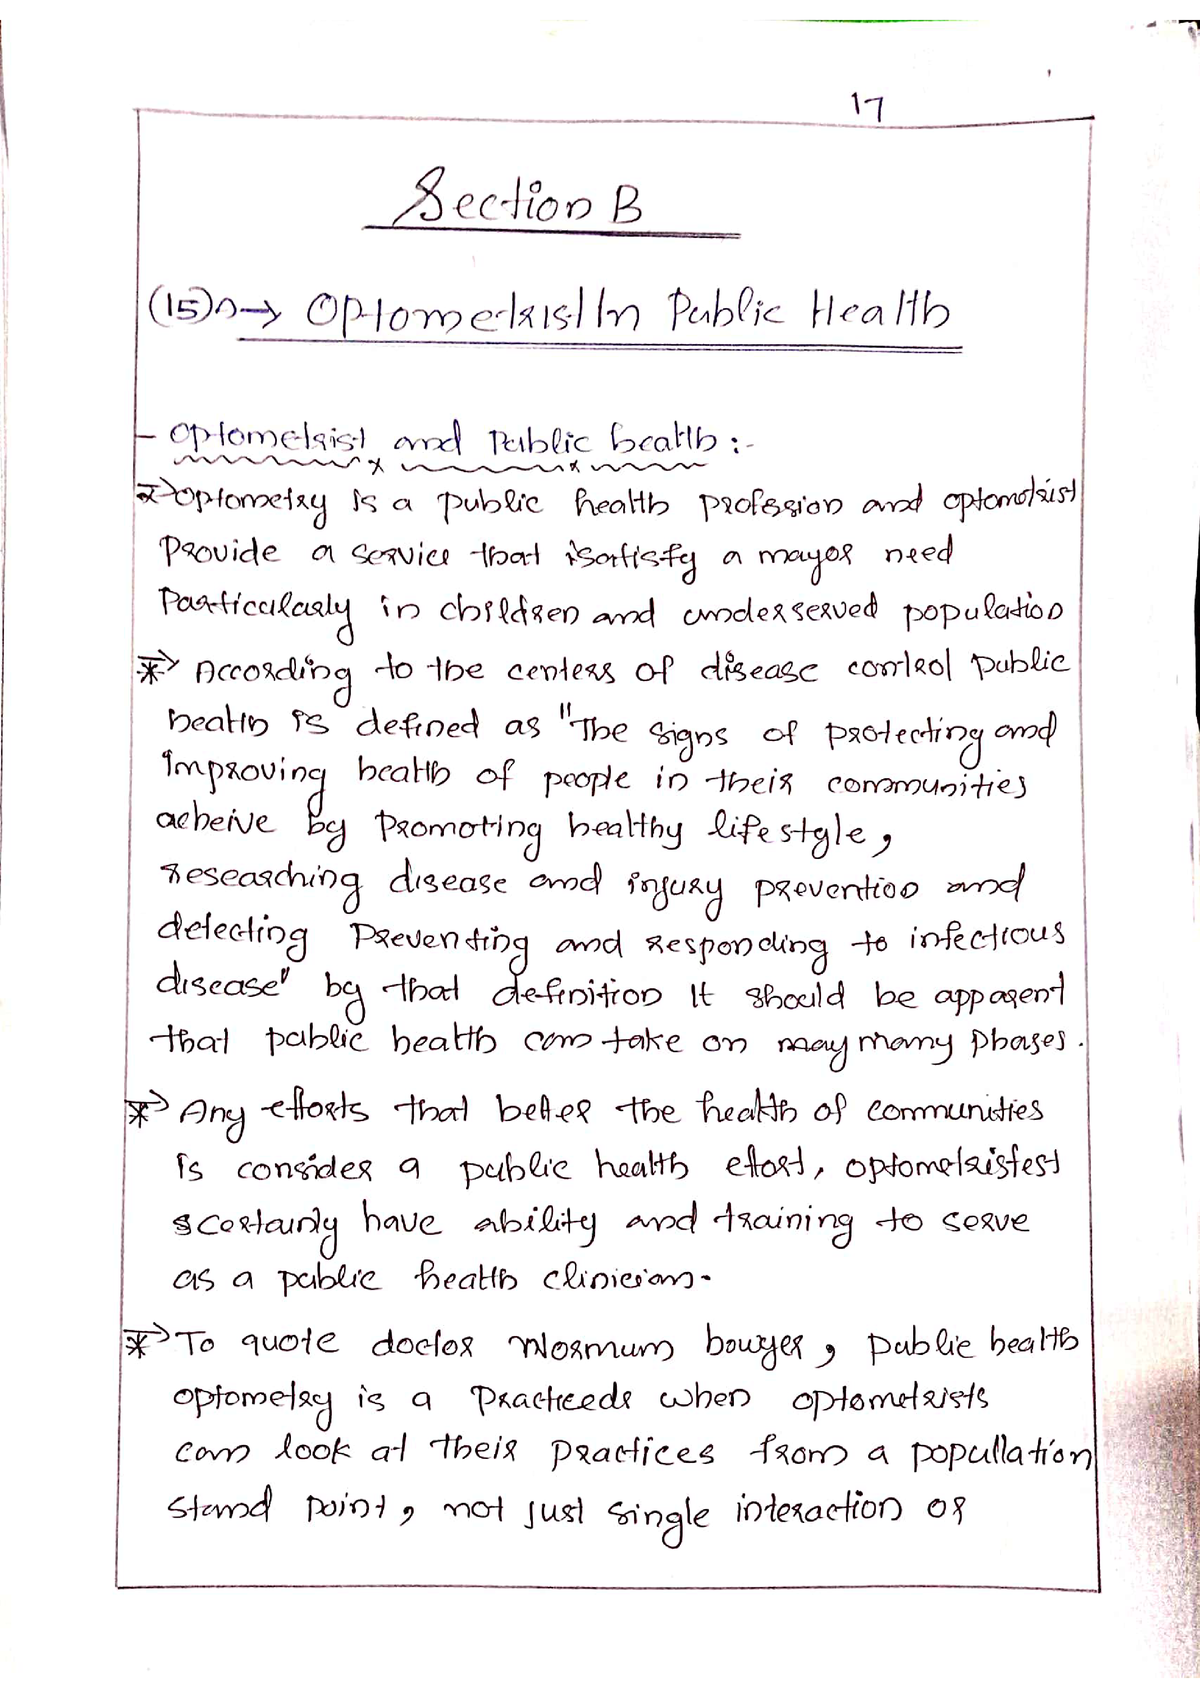 17
Section B
(15) → Optometrist In Public Health
- Optometrist and Public health :-
* → Optometry is a public health profession and optometrist
Provide a service that isatisfy a mayor need
Particularly in children and underserved population
* → According to the centers of disease control public
health is defined as "The signs of protecting and
Improving health of people in their communities
acheive by Promoting healthy lifestyle,
researching disease and injury prevention and
detecting Preventing and responding to infectious
disease" by that definition It should be apparent
that public health can take on may many phases.
* → Any efforts that better the health of communities
is consider a public health effort, optometristest
s certainly have ability and training to serve
as a public health clinician.
* → To quote doctor Normum bowyer, Public health
optometry is a Practiceeds when optometrists
can look at their practices from a popullation
stand point, not just single interaction or